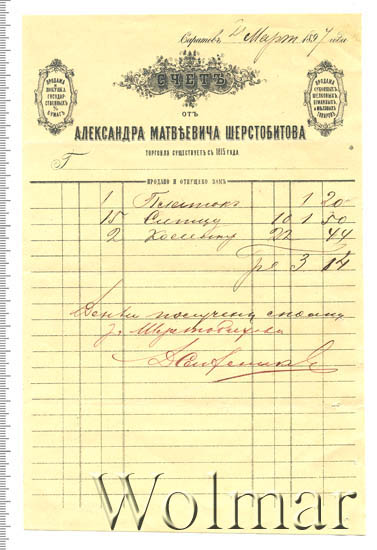 Саратовъ, Март 1897 года
СЧЕТЪ
ПРОДАЖА и ПОКУПКА ГОСУДАРСТВЕННЫХЪ % БУМАГЪ
ПРОДАЖА СУКОННЫХЪ ШЕЛКОВЫХЪ БУМАЖНЫХЪ и МѢХОВЫХЪ ТОВАРОВЪ
ОТЪ
АЛЕКСАНДРА МАТВѢЕВИЧА ШЕРСТОБИТОВА
ТОРГОВЛЯ СУЩЕСТВУЕТЪ СЪ 1815 ГОДА
Г
ПРОДАНО И ОТПУЩЕНО ВАМЪ
1 Платокъ 1 20
15 Ситцу 10 1 50
2 22 44
3 14
Деньги получены сполна
Wolmar